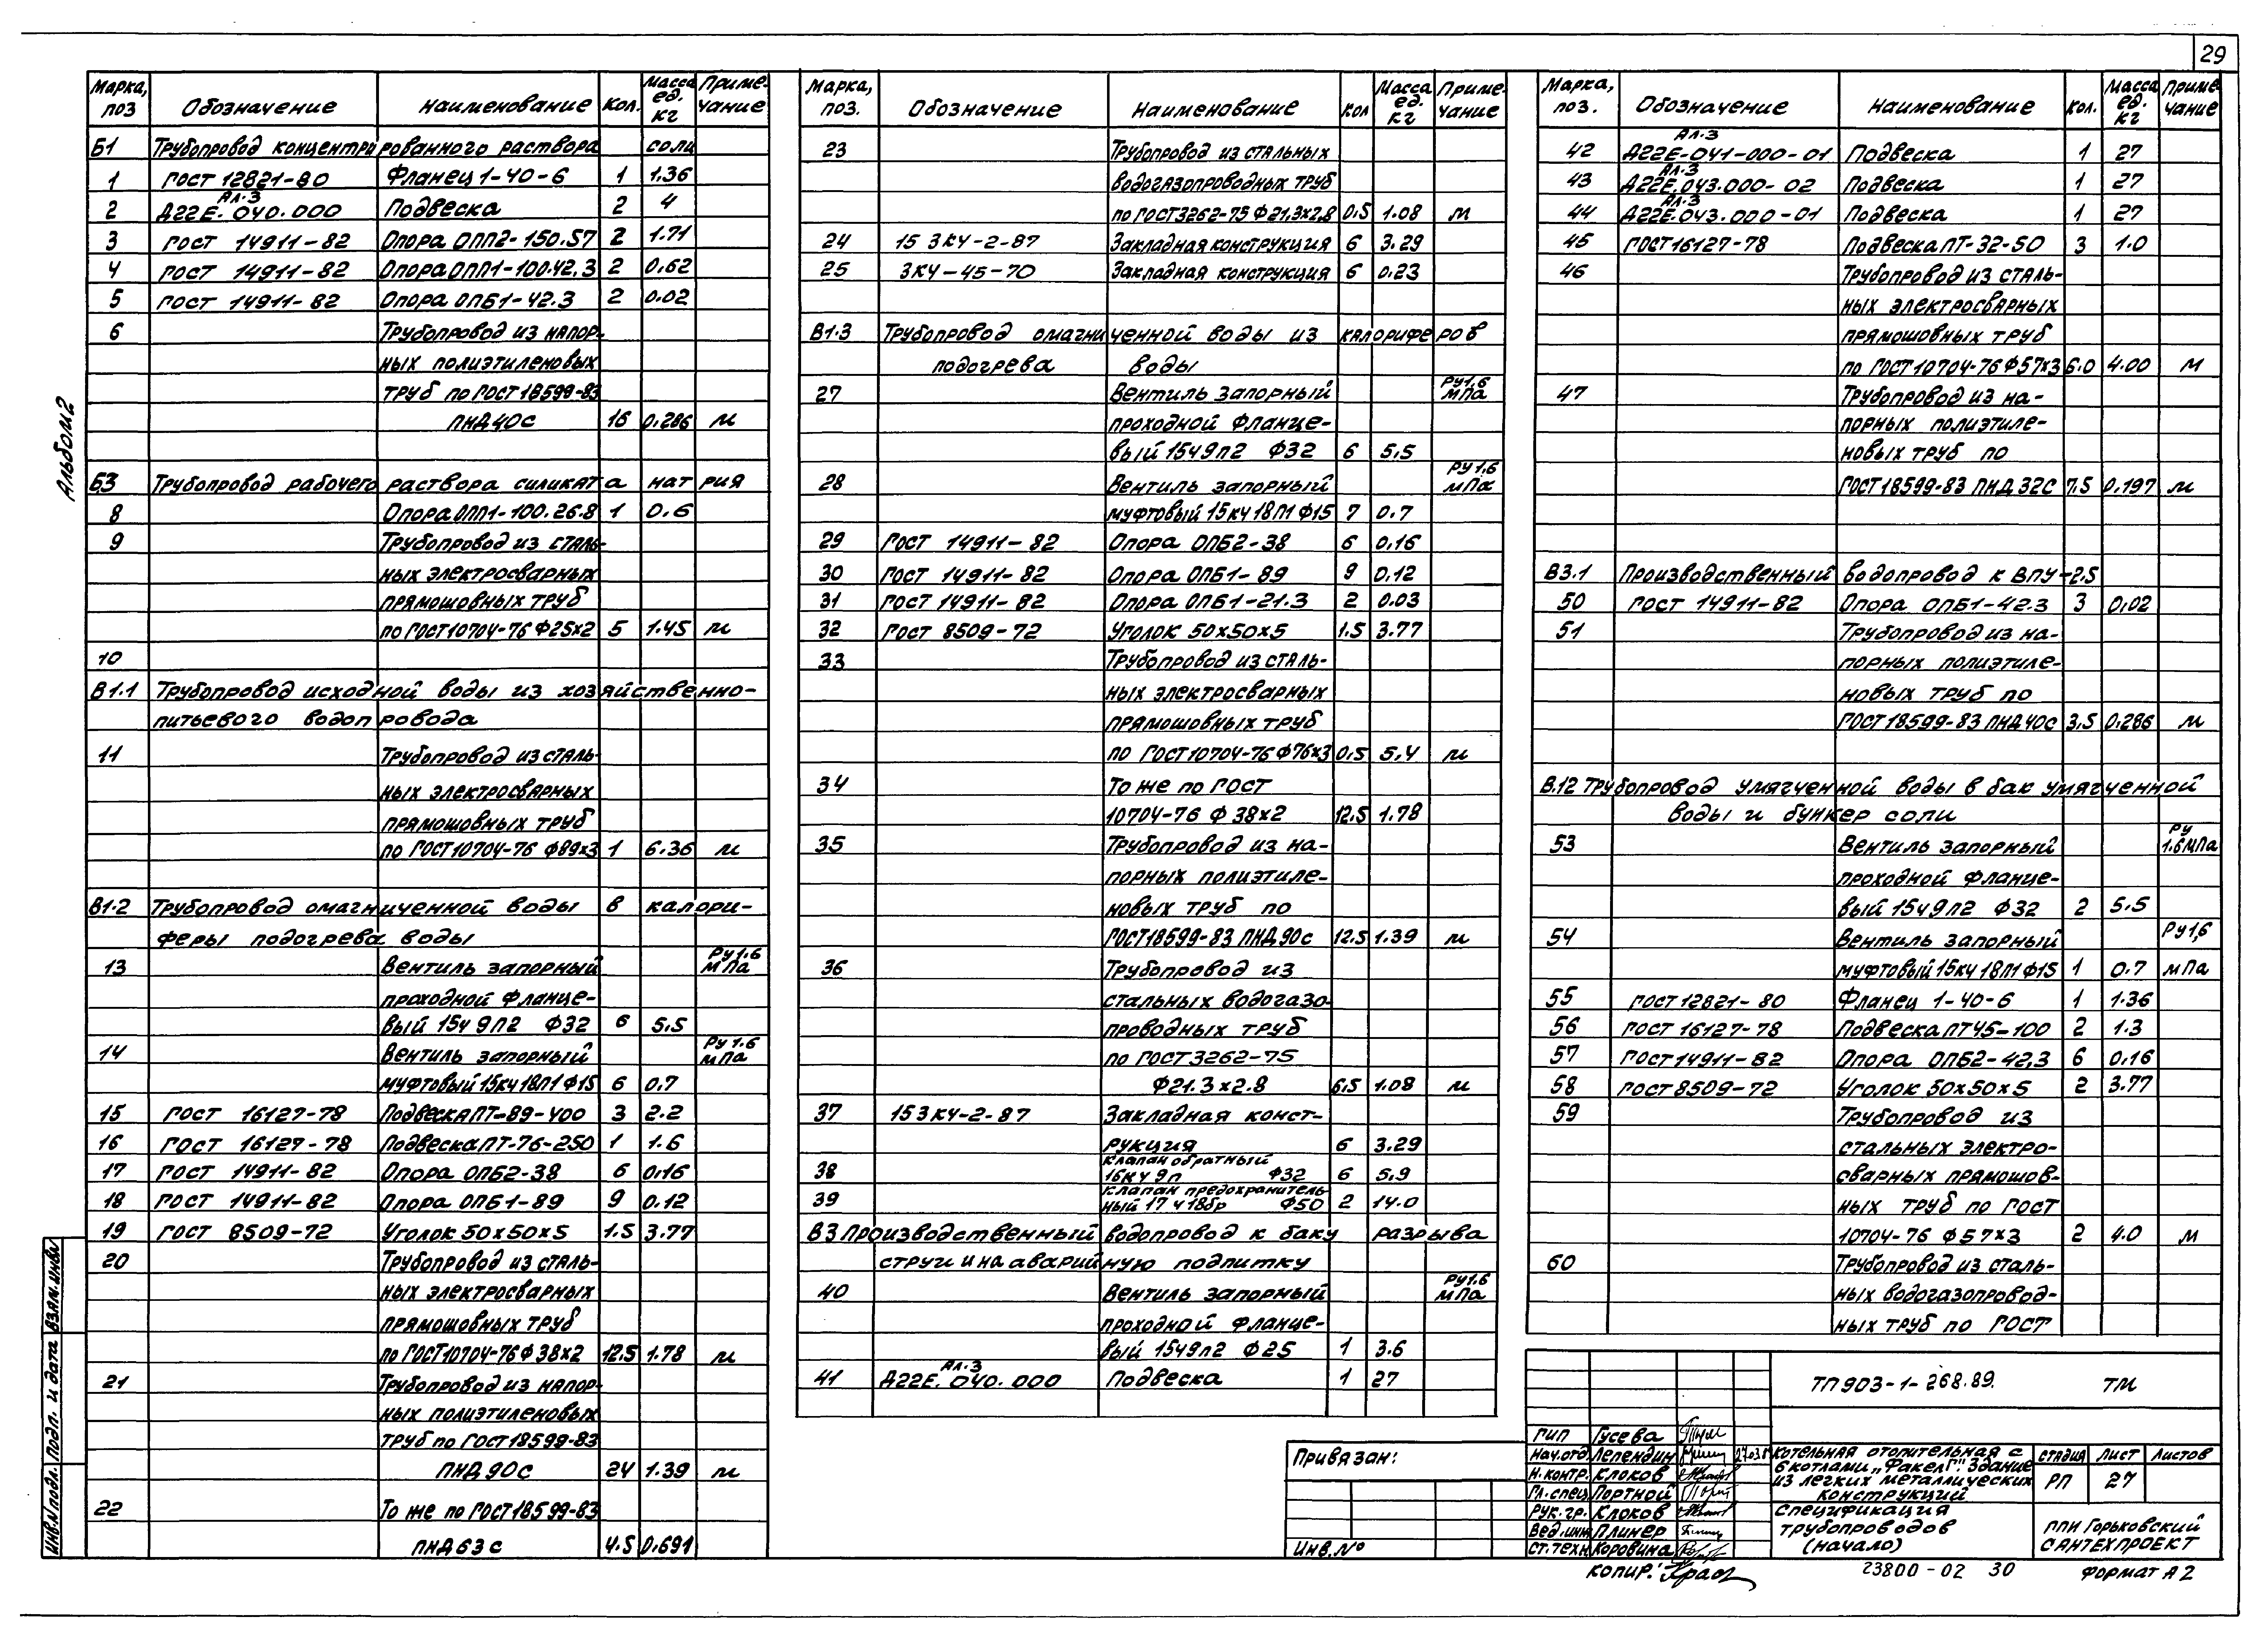 29
Альбом 2
Марка, поз Обозначение Наименование Кол. Масса ед. кг Приме-чание
Б1 Трубопровод концентрированного раствора соли
1 ГОСТ 12821-80 Фланец 1-40-6 1 1.36
2 А22Е.040.000 Ал.3 Подвеска 2 4
3 ГОСТ 14911-82 Опора ОПП2-150.57 2 1.71
4 ГОСТ 14911-82 Опора ОПП1-100.42.3 2 0.62
5 ГОСТ 14911-82 Опора ОПБ1-42.3 2 0.02
6 Трубопровод из напор-
ных полиэтиленовых
труб по ГОСТ 18599-83
ПНД 40С 16 0.286 м
Б3 Трубопровод рабочего раствора силиката натрия
8 Опора ОПП1-100.26.8 1 0.6
9 Трубопровод из сталь-
ных электросварных
прямошовных труб
по ГОСТ 10704-76 Ф25х2 5 1.45 м
10
В1.1 Трубопровод исходной воды из хозяйственно-
питьевого водопровода
11 Трубопровод из сталь-
ных электросварных
прямошовных труб
по ГОСТ 10704-76 Ф89х3 1 6.36 м
В1.2 Трубопровод омагниченной воды в калори-
феры подогрева воды
13 Вентиль запорный Ру1.6 мПа
проходной фланце-
вый 15ч 9п2 Ф32 6 5.5
14 Вентиль запорный Ру1.6 мПа
муфтовый 15кч 18п1 Ф15 6 0.7
15 ГОСТ 16127-78 Подвеска ПТ-89-400 3 2.2
16 ГОСТ 16127-78 Подвеска ПТ-76-250 1 1.6
17 ГОСТ 14911-82 Опора ОПБ2-38 6 0.16
18 ГОСТ 14911-82 Опора ОПБ1-89 9 0.12
19 ГОСТ 8509-72 Уголок 50х50х5 1.5 3.77
20 Трубопровод из сталь-
ных электросварных
прямошовных труб
по ГОСТ 10704-76 Ф38х2 12.5 1.78 м
21 Трубопровод из напор-
ных полиэтиленовых
труб по ГОСТ 18599-83
ПНД 90С 24 1.39 м
22 То же по ГОСТ 18599-83
ПНД 63С 4.5 0.691
Марка, поз. Обозначение Наименование Кол Масса ед. кг Приме-чание
23 Трубопровод из стальных
водогазопроводных труб
по ГОСТ 3262-75 Ф21,3х2,8 0.5 1.08 м
24 15 ЗКЧ-2-87 Закладная конструкция 6 3.29
25 ЗКЧ-45-70 Закладная конструкция 6 0.23
В1.3 Трубопровод омагниченной воды из калориферов
подогрева воды
27 Вентиль запорный Ру1.6 мПа
проходной фланце-
вый 15ч 9п2 Ф32 6 5.5
28 Вентиль запорный Ру1.6 мПа
муфтовый 15кч 18п1 Ф15 7 0.7
29 ГОСТ 14911-82 Опора ОПБ2-38 6 0.16
30 ГОСТ 14911-82 Опора ОПБ1-89 9 0.12
31 ГОСТ 14911-82 Опора ОПБ1-21.3 2 0.03
32 ГОСТ 8509-72 Уголок 50х50х5 1.5 3.77
33 Трубопровод из сталь-
ных электросварных
прямошовных труб
по ГОСТ 10704-76 Ф76х3 0.5 5.4 м
34 То же по ГОСТ
10704-76 Ф 38х2 12.5 1.78
35 Трубопровод из на-
порных полиэтиле-
новых труб по
ГОСТ 18599-83 ПНД 90с 12.5 1.39 м
36 Трубопровод из
стальных водогазо-
проводных труб
по ГОСТ 3262-75
Ф21.3х2.8 6.5 1.08 м
37 15 ЗКЧ-2-87 Закладная конст-
рукция 6 3.29
38 Клапан обратный
16кч 9п Ф32 6 5.9
39 Клапан предохранитель-
ный 17 ч 18бр Ф50 2 14.0
В3 Производственный водопровод к баку разрыва
струи и на аварийную подпитку
40 Вентиль запорный Ру1.6 мПа
проходной фланце-
вый 15ч9п2 Ф25 1 3.6
41 А22Е.040.000 Ал.3 Подвеска 1 27
Марка, поз. Обозначение Наименование Кол. Масса ед. кг Приме-чание
42 А22Е-041-000-01 Ал.3 Подвеска 1 27
43 А22Е.043.000-02 Ал.3 Подвеска 1 27
44 А22Е.043.000-01 Ал.3 Подвеска 1 27
45 ГОСТ 16127-78 Подвеска ПТ-32-50 3 1.0
46 Трубопровод из сталь-
ных электросварных
прямошовных труб
по ГОСТ 10704-76 Ф57х3 6.0 4.00 м
47 Трубопровод из на-
порных полиэтиле-
новых труб по
ГОСТ 18599-83 ПНД 32С 7.5 0.197 м
В3.1 Производственный водопровод к ВПУ-2.5
50 ГОСТ 14911-82 Опора ОПБ1-42.3 3 0.02
51 Трубопровод из на-
порных полиэтиле-
новых труб по
ГОСТ 18599-83 ПНД 40с 3.5 0.286 м
В.12 Трубопровод умягченной воды в бак умягченной
воды и бункер соли
53 Вентиль запорный Ру 1.6 мПа
проходной фланце-
вый 15ч 9п2 Ф32 2 5.5
54 Вентиль запорный Ру1,6
муфтовый 15кч 18п1 Ф15 1 0.7 мПа
55 ГОСТ 12821-80 Фланец 1-40-6 1 1.36
56 ГОСТ 16127-78 Подвеска ПТ45-100 2 1.3
57 ГОСТ 14911-82 Опора ОПБ2-42,3 6 0.16
58 ГОСТ 8509-72 Уголок 50х50х5 2 3.77
59 Трубопровод из
стальных электро-
сварных прямошов-
ных труб по ГОСТ
10704-76 Ф57х3 2 4.0 м
60 Трубопровод из сталь-
ных водогазопровод-
ных труб по ГОСТ
Взам. инв№
Подп. и дата
Инв.№ подл.
Привязан:
Инв.№
ТП 903-1-268.89. ТМ
ГИП Гусева
Нач.отд. Лепендин 27.03.8
Н.контр. Клоков
Гл.спец. Портной
Рук.гр. Клоков
Вед.инж. Плинер
Ст.техн. Коровина
Котельная отопительная с
6 котлами „Факел Г". Здание
из легких металлических
конструкций
Стадия Лист Листов
РП 27
Спецификация
трубопроводов
(начало)
ППИ Горьковский
Сантехпроект
Копир.:
23800-02 30
Формат А2